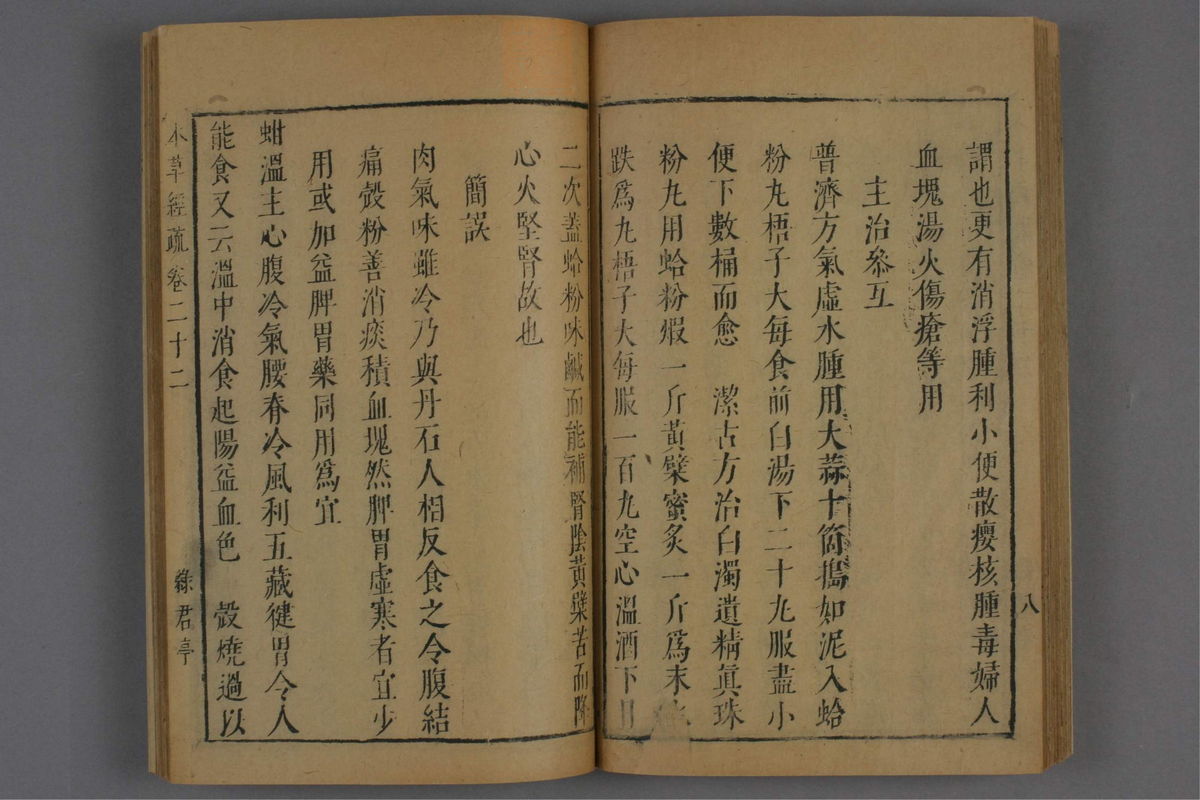 八
謂也更有消浮腫利小便散癭核腫毒婦人
血塊湯火傷瘡等用
主治叅互
普濟方氣虛水腫用大蒜十箇搗如泥入蛤
粉丸梧子大每食前白湯下二十丸服盡小
便下數桶而愈 潔古方治白濁遺精真珠
粉丸用蛤粉煆一斤黃櫱蜜炙一斤爲末
跌爲丸梧子大每服一百丸空心溫酒下日
二次蓋蛤粉味鹹而能補腎陰黃櫱苦而降
心火堅腎故也
簡誤
肉氣味雖冷乃與丹石人相反食之令腹結
痛殼粉善消痰積血塊然脾胃虛寒者宜少
用或加益脾胃藥同用爲宜
蚶溫主心腹冷氣腰脊冷風利五藏健胃令人
能食又云溫中消食起陽益血色 殼燒過以
本草經疏 卷二十二 綠君亭